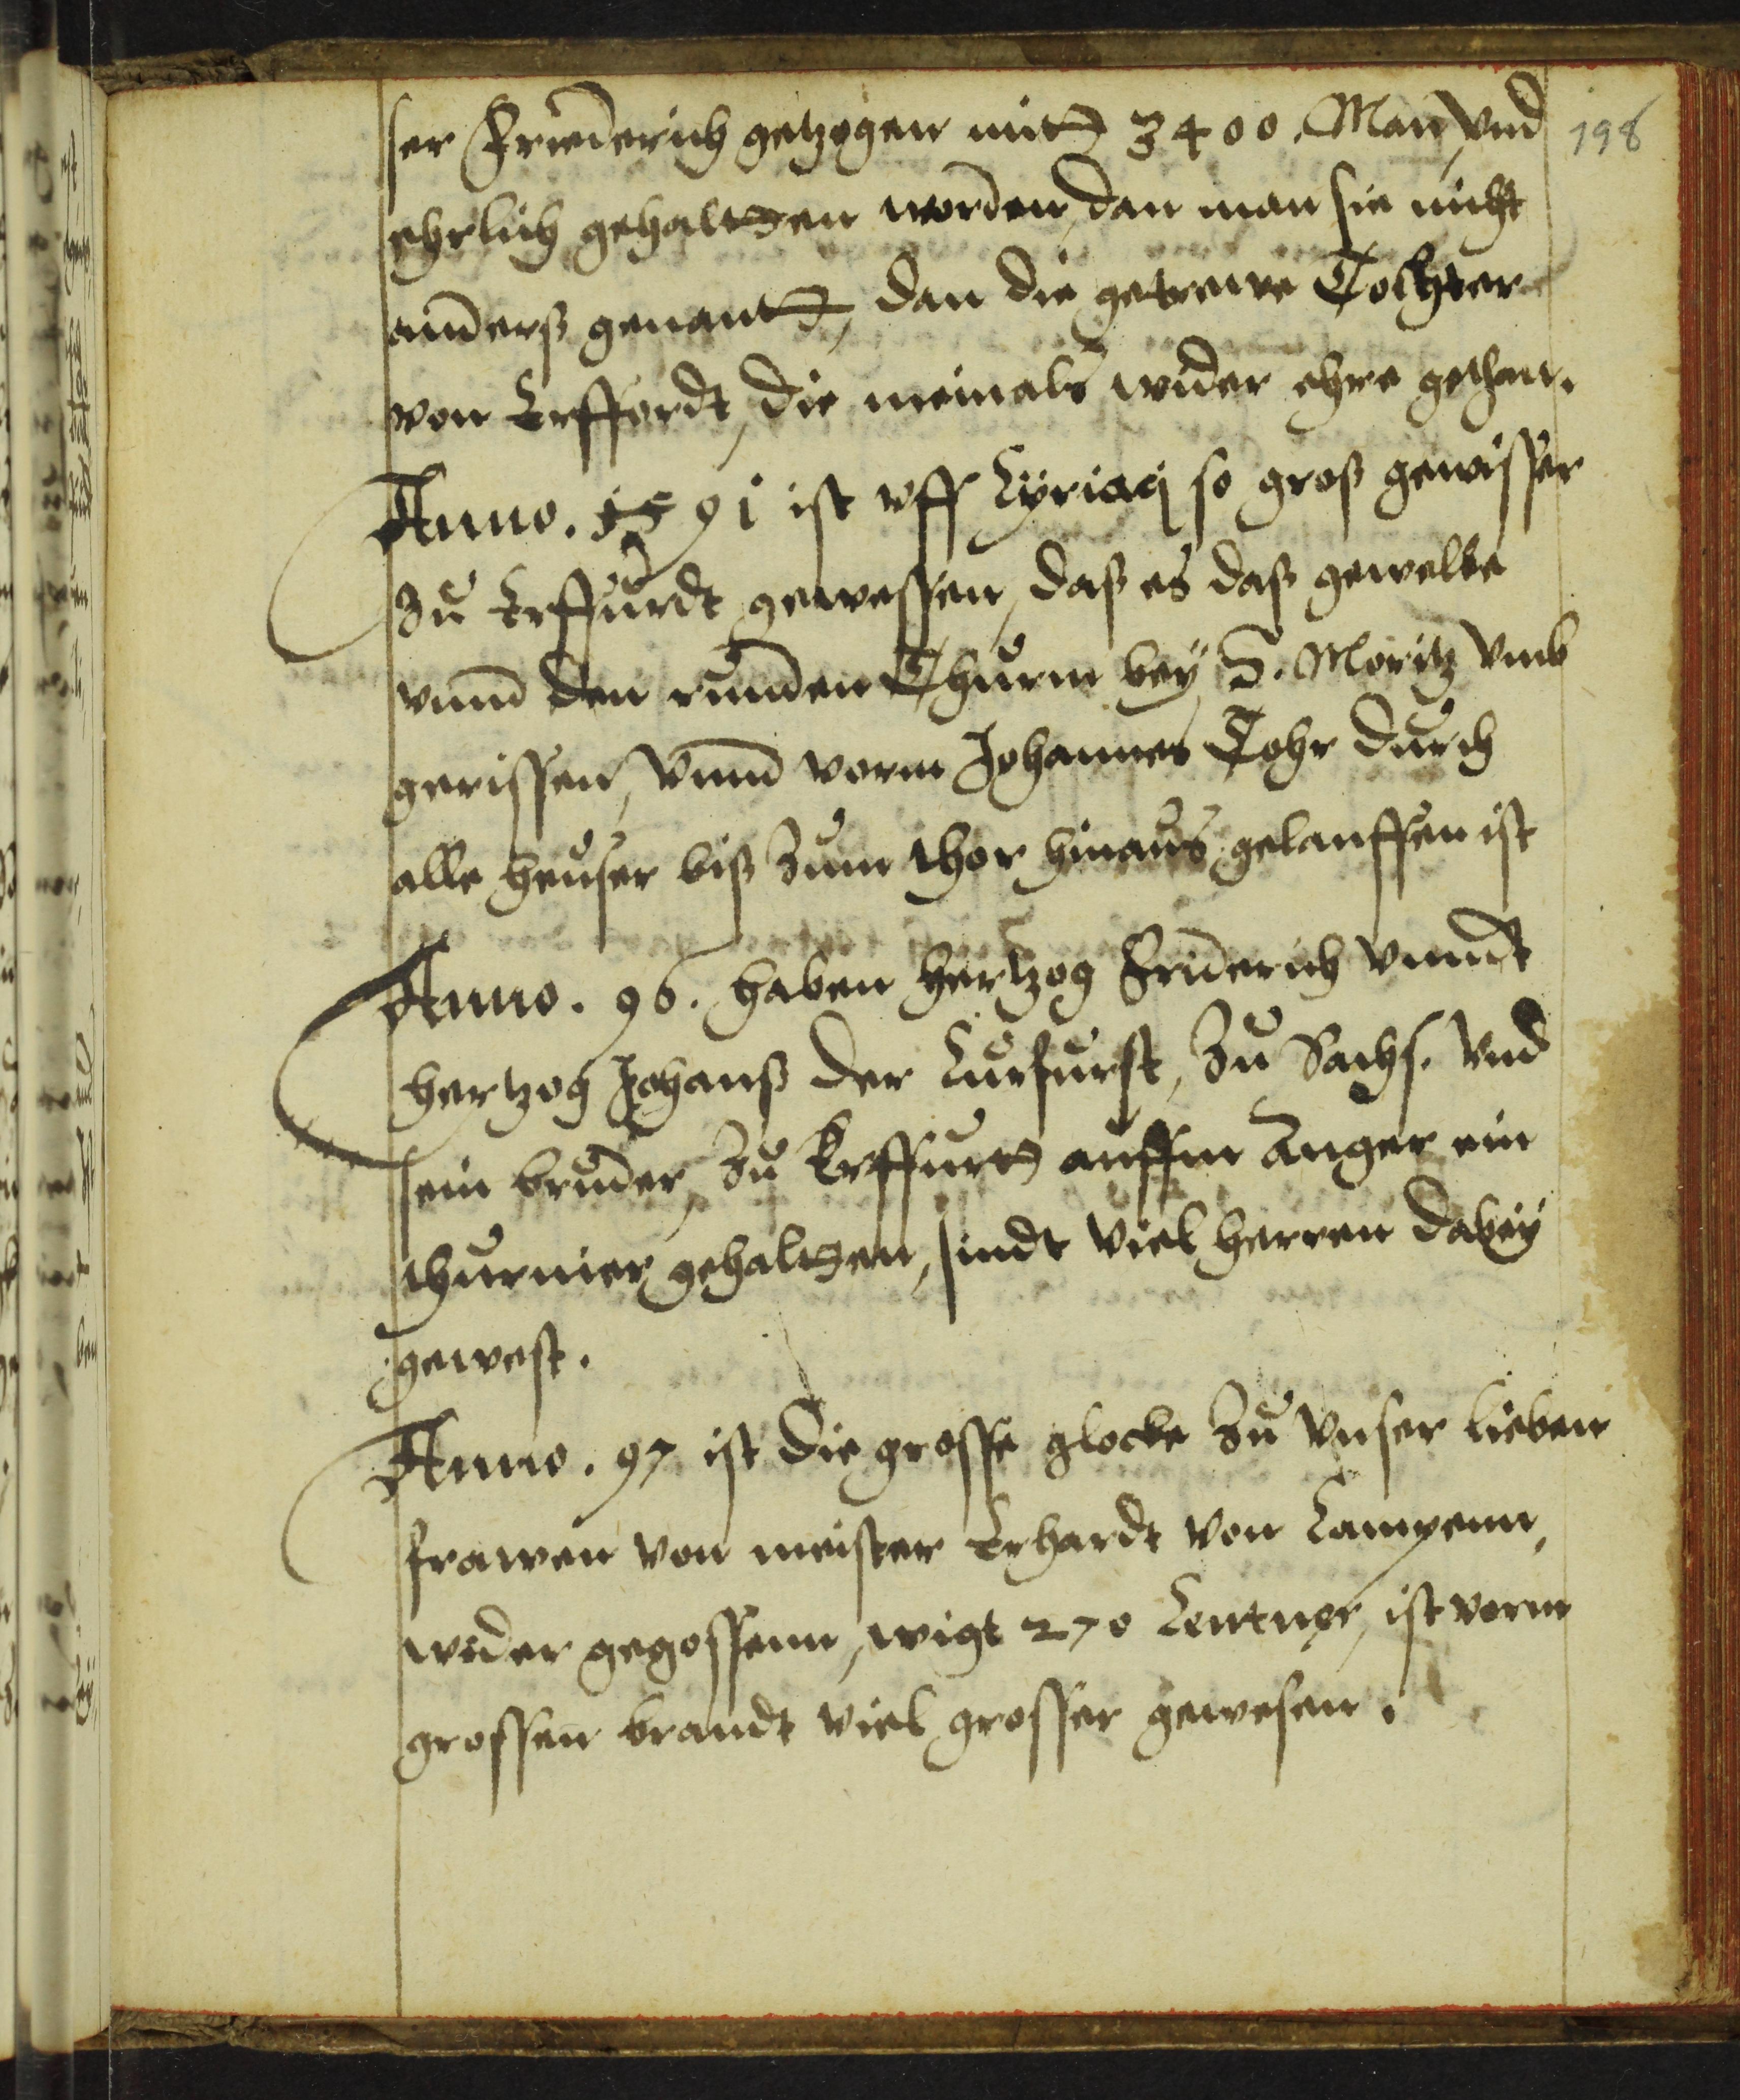 ser Friederich getzogen mitt 3400. Man, vnd
198
ehrlich gehaltten worden, dan man sie nicht
anderß genantt, dan die getrewe Tochter
von Erffordt, die niemals wider ehre gethan.
Anno. 1591 ist vff Cyriaci so groß gewisser
zu Erffurdt gewessen, daß es daß gewelbe
vnnd den runden Thurm bey S. Moritz vmb
gerissen, vnnd vorm Johannes Tohr durch
alle heuser biß zum thor hinaus gelauffen ist
Anno. 96. haben hertzog Friderich vnnd
hertzog Johanß der Curfurst, zu Sachs. vnd
sein bruder, zu Erffurtt auffm Anger ein
thurnier gehaltten, sindt viel herren dabey
gewest.
Anno. 97 ist die grosse glocke zu vnser lieben
frawen von meister Erhardt von Campenn,
wider gegossenn, wigt 270 Centner, ist vorm
grossen brandt viel grosser gewesen.